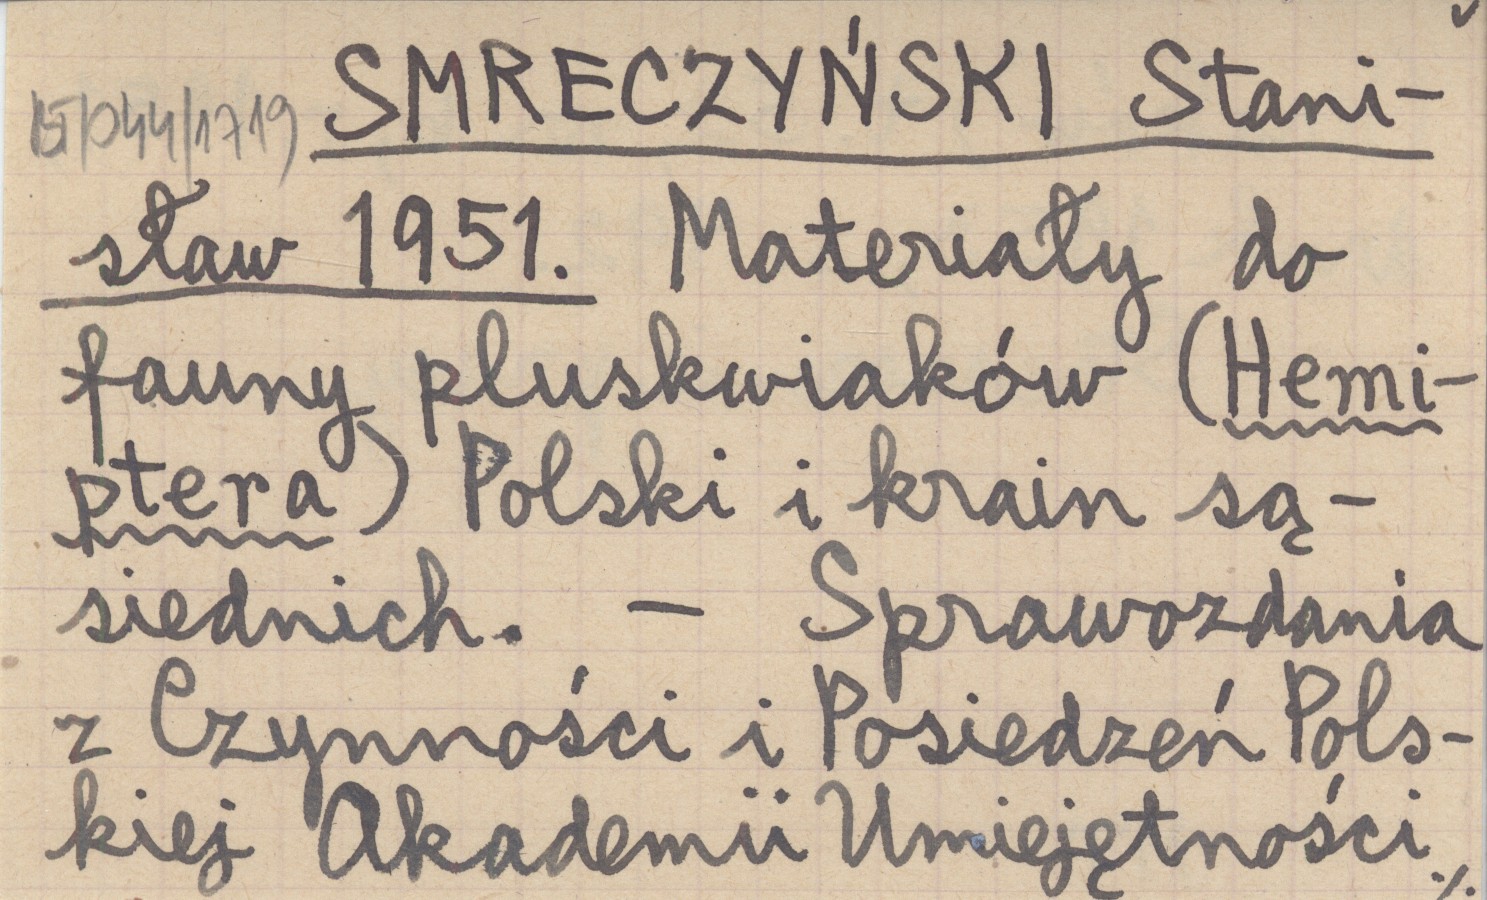 SMRECZYŃSKI Stani-
sław 1951. Materiały do
fauny pluskwiaków (Hemi-
ptera) Polski i krain są-
siednich. — Sprawozdania
z Czynności i Posiedzeń Pols-
kiej Akademii Umiejętności
./.